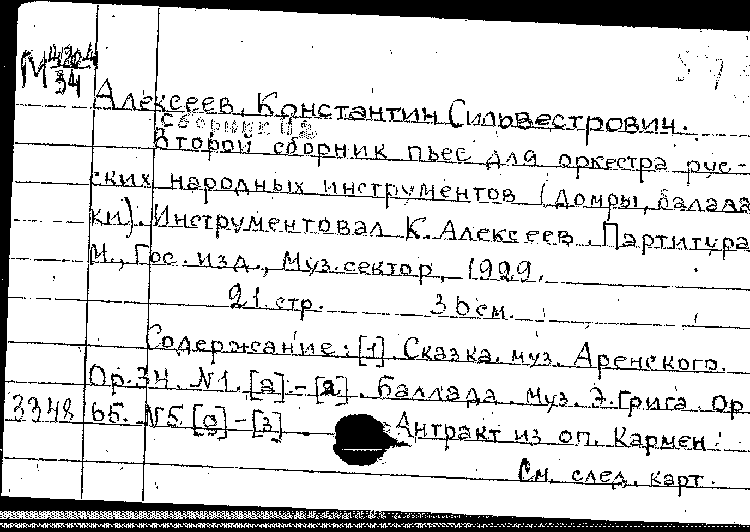 М 4204/34
Алексеев, Константин Сильвестрович.
Сборник
Второй сборник пьес для оркестра рус-
ских народных инструментов (домры, балалай
ки). Инструментовал К. Алексеев. Партитура
М., Гос. изд., Муз. сектор, 1929.
21 стр. 36 см.
Содержание: [1]. Сказка. муз. Аренского.
Op. 34. N1. [а]-[2]. Баллада. муз. Э. Грига. Op
3348 65. N5 [а]-[3]. Антракт из оп. Кармен:
См. след. карт.